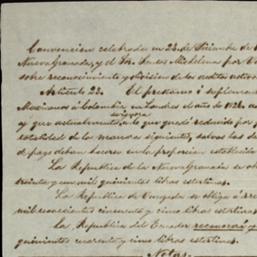 Convencion celebrada en 23 de Diciembre de
Nueva Granada, y el Sr. Santos Michelena por
sobre reconocimiento y division de los creditos activos
Articulo 22. El prestamo i suplemento
Mexicanos á Colombia en Londres el año de 1826.
y que actualmente, a lo que quedó reducido por
totalidad de la manera siguiente, salvas las
de pago deban hacerse en la proporcion establecida
La Republica de la Nueva Granada se
treinta y un mil quinientas libras esterlinas.
La Republica de Venezuela se obliga á
mil novecientas cincuenta y cinco libras esterlinas
La Republica del Ecuador reconocerá
quinientas cuarenta y cinco libras esterlinas.
Notas.